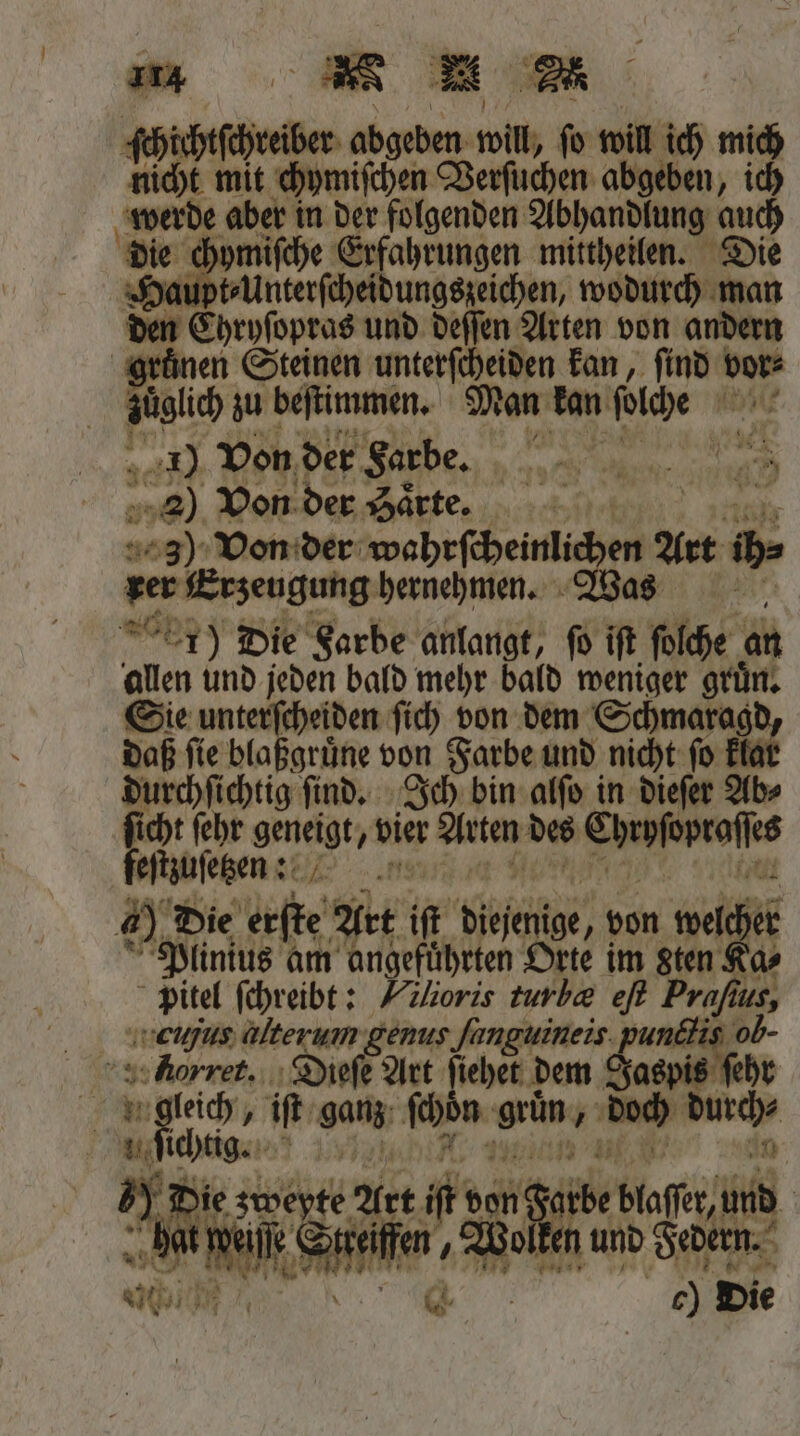 114
ſchichtſchreiber abgeben will, ſo will ich mich
nicht mit chymiſchen Verſuchen abgeben, ich
werde aber in der folgenden Abhandlung auch
die chymiſche Erfahrungen mittheilen. Die
Haupt-Unterſcheidungszeichen, wodurch man
den Chryſopras und deſſen Arten von andern
gruͤnen Steinen unterſcheiden kan, ſind vor-
zuͤglich zu beſtimmen. Man kan ſolche
1) Von der Farbe.
2) Von der Haͤrte.
3) Von der wahrſcheinlichen Art ih-
rer Erzeugung hernehmen. Was
1) Die Farbe anlangt, ſo iſt ſolche an
allen und jeden bald mehr bald weniger gruͤn.
Sie unterſcheiden ſich von dem Schmaragd,
daß ſie blaßgruͤne von Farbe und nicht ſo klar
durchſichtig ſind. Ich bin alſo in dieſer Ab-
ſicht ſehr geneigt, vier Arten des Chryſopraſſes
feſtzuſetzen:
a) Die erſte Art iſt diejenige, von welcher
Plinius am angefuͤhrten Orte im 8ten Ka-
pitel ſchreibt: Vilioris turbæ eſt Praſius,
cujus alterum genus ſanguineis punctis ob-
horret. Dieſe Art ſiehet dem Jaspis ſehr
gleich, iſt ganz ſchoͤn gruͤn, doch durch-
ſichtig.
b) Die zweyte Art iſt von Farbe blaſſer, und
hat weiſſe Streiffen, Wolken und Federn.
c) Die